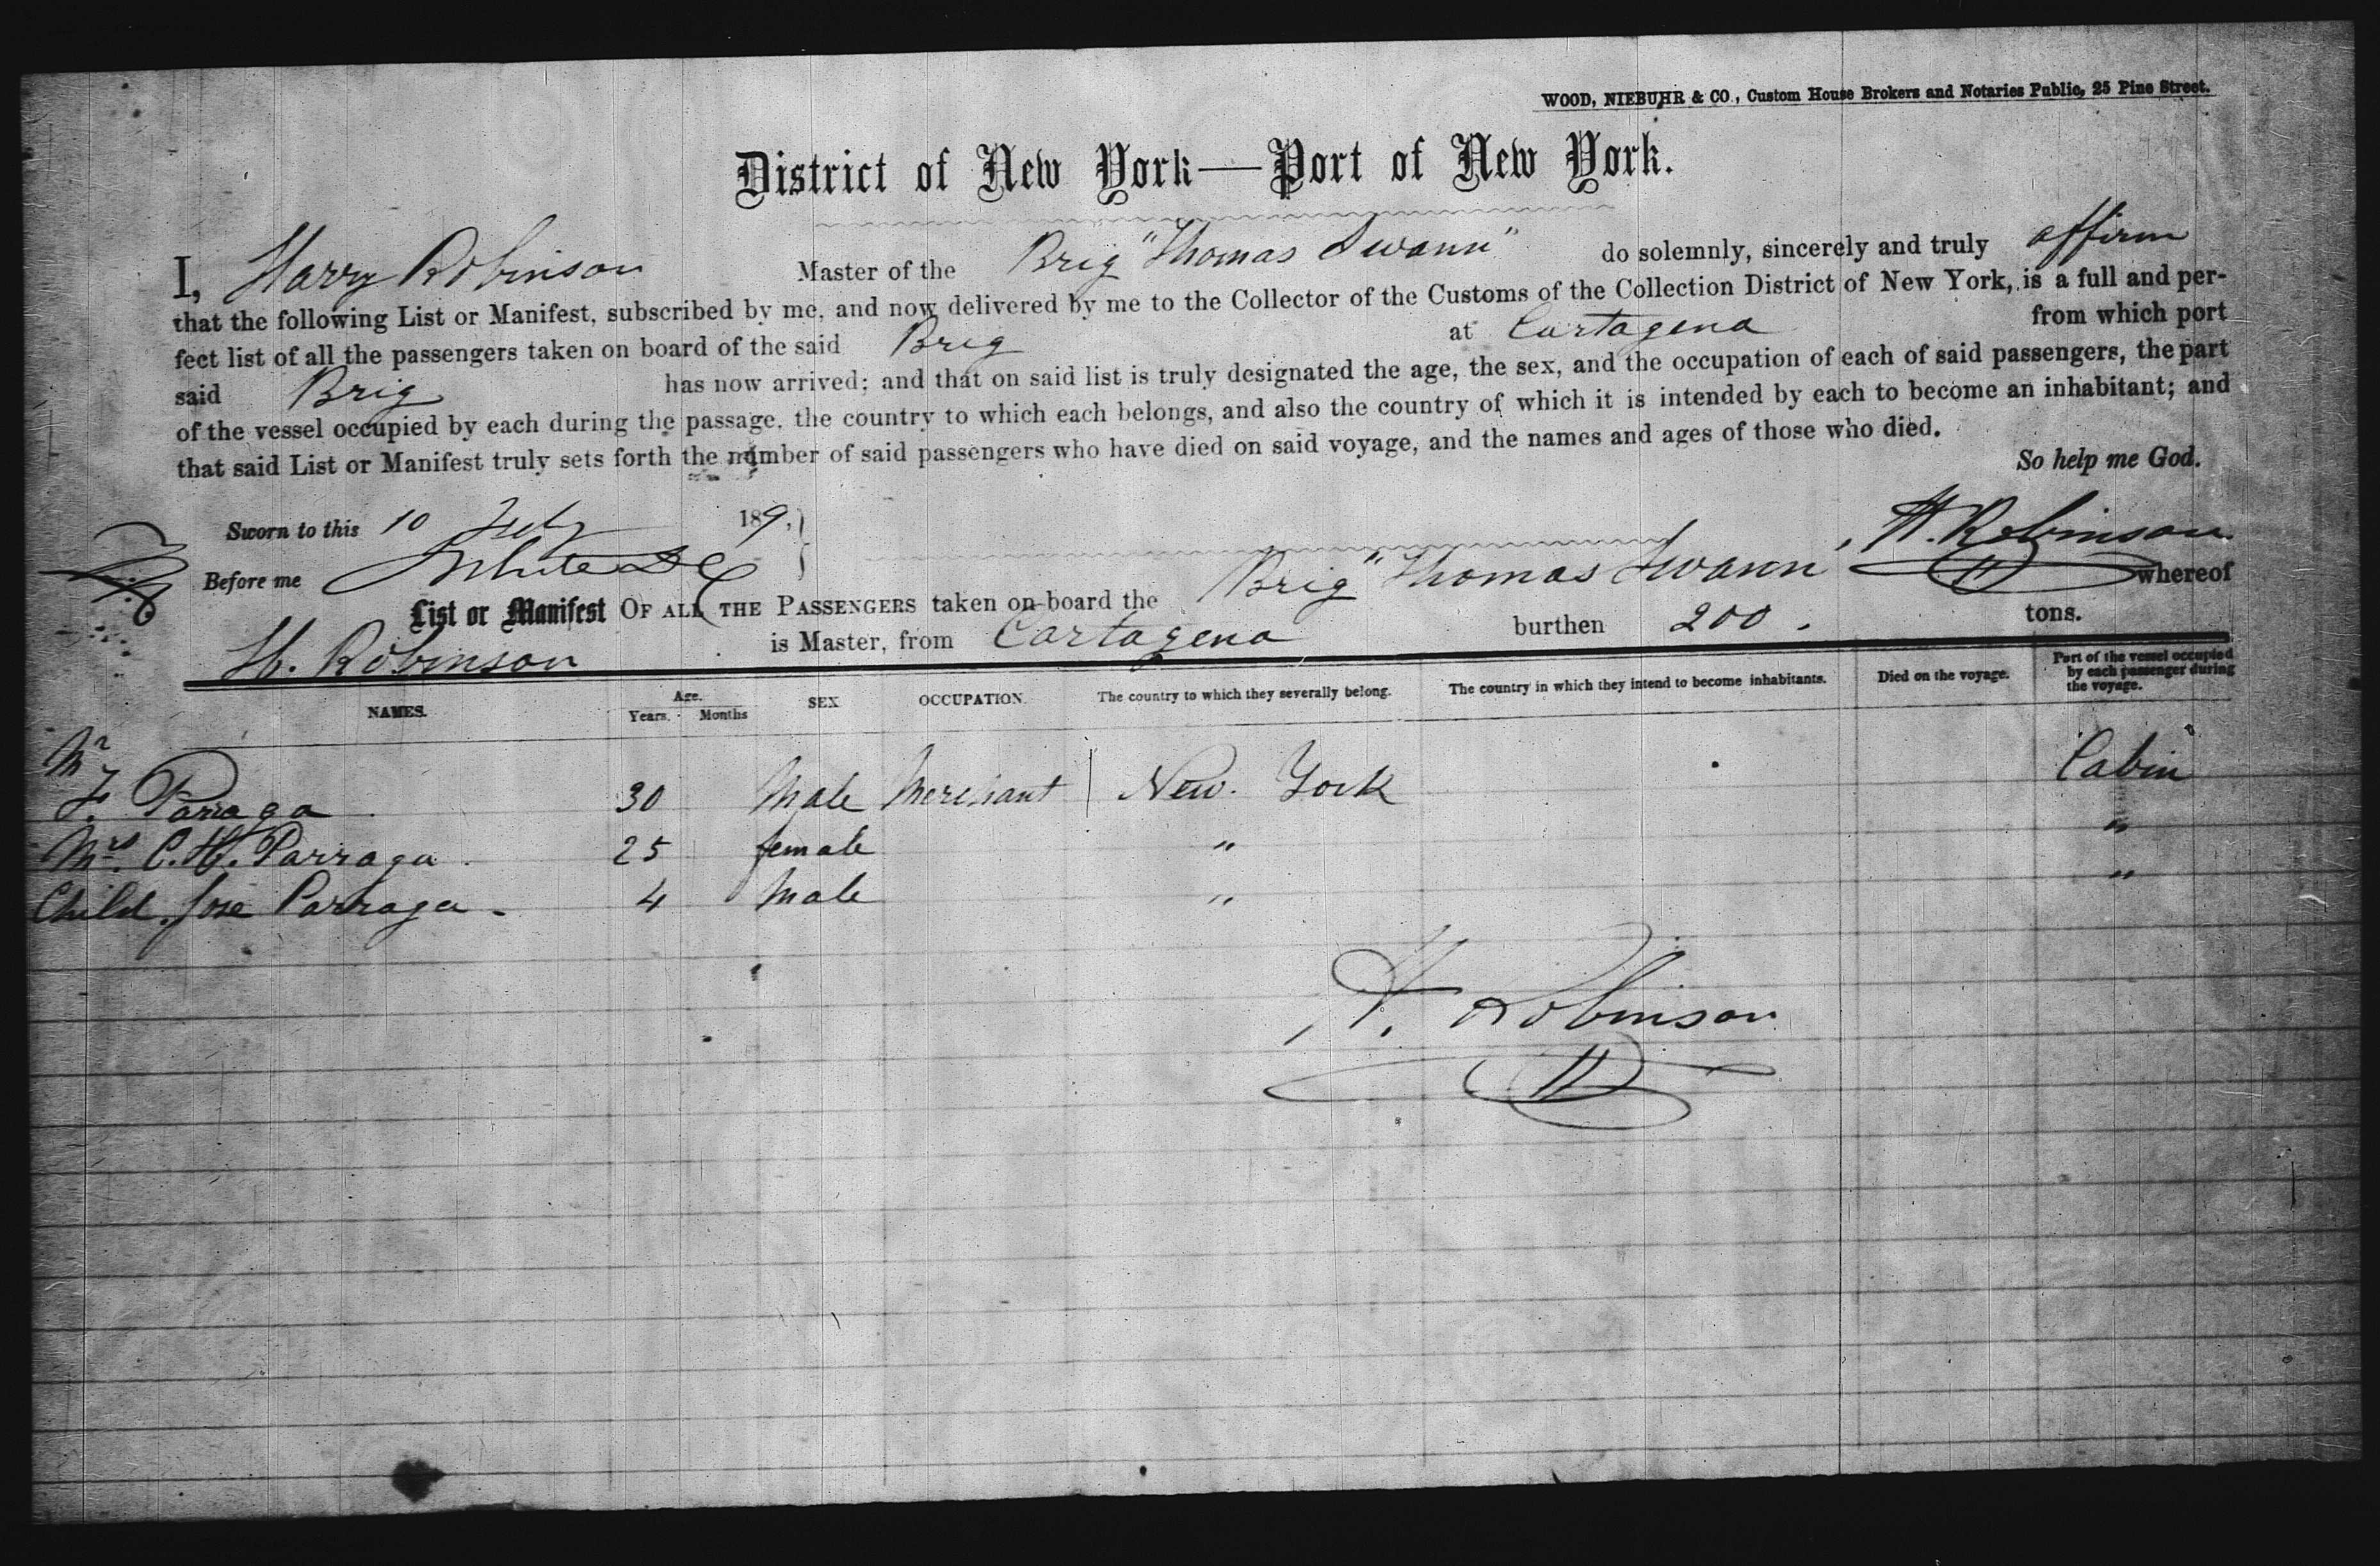 WOOD, NIEBUHR & CO., Custom House Brokers and Notaries Public, 25 Pine Street.
District of New York—Port of New York.
I, Harry Robinson Master of the Brig "Thomas Swann" do solemnly, sincerely and truly affirm
that the following List or Manifest, subscribed by me, and now delivered by me to the Collector of the Customs of the Collection District of New York, is a full and per-
fect list of all the passengers taken on board of the said Brig at Cartagena from which port
said Brig has now arrived; and that on said list is truly designated the age, the sex, and the occupation of each of said passengers, the part
of the vessel occupied by each during the passage, the country to which each belongs, and also the country of which it is intended by each to become an inhabitant; and
that said List or Manifest truly sets forth the number of said passengers who have died on said voyage, and the names and ages of those who died.
So help me God.
Sworn to this 10 189, H. Robinson
Before me
List or Manifest OF ALL THE PASSENGERS taken on board the Brig "Thomas Swann" whereof
H. Robinson is Master, from Cartagena burthen 200. tons.
NAMES. Age. Years. Months SEX OCCUPATION. The country to which they severally belong. The country in which they intend to become inhabitants. Died on the voyage. Part of the vessel occupied by each passenger during the voyage.
Mr
F. Parraga 30 Male Merchant New. York Cabin
Mrs. C. H. Parraga. 25 female " "
Child. Jose Parraga - 4 Male " "
H. Robinson